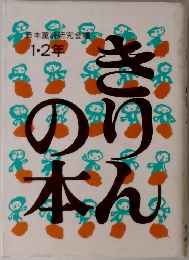 日本童詩研究会編
1・2年
きりん
の本